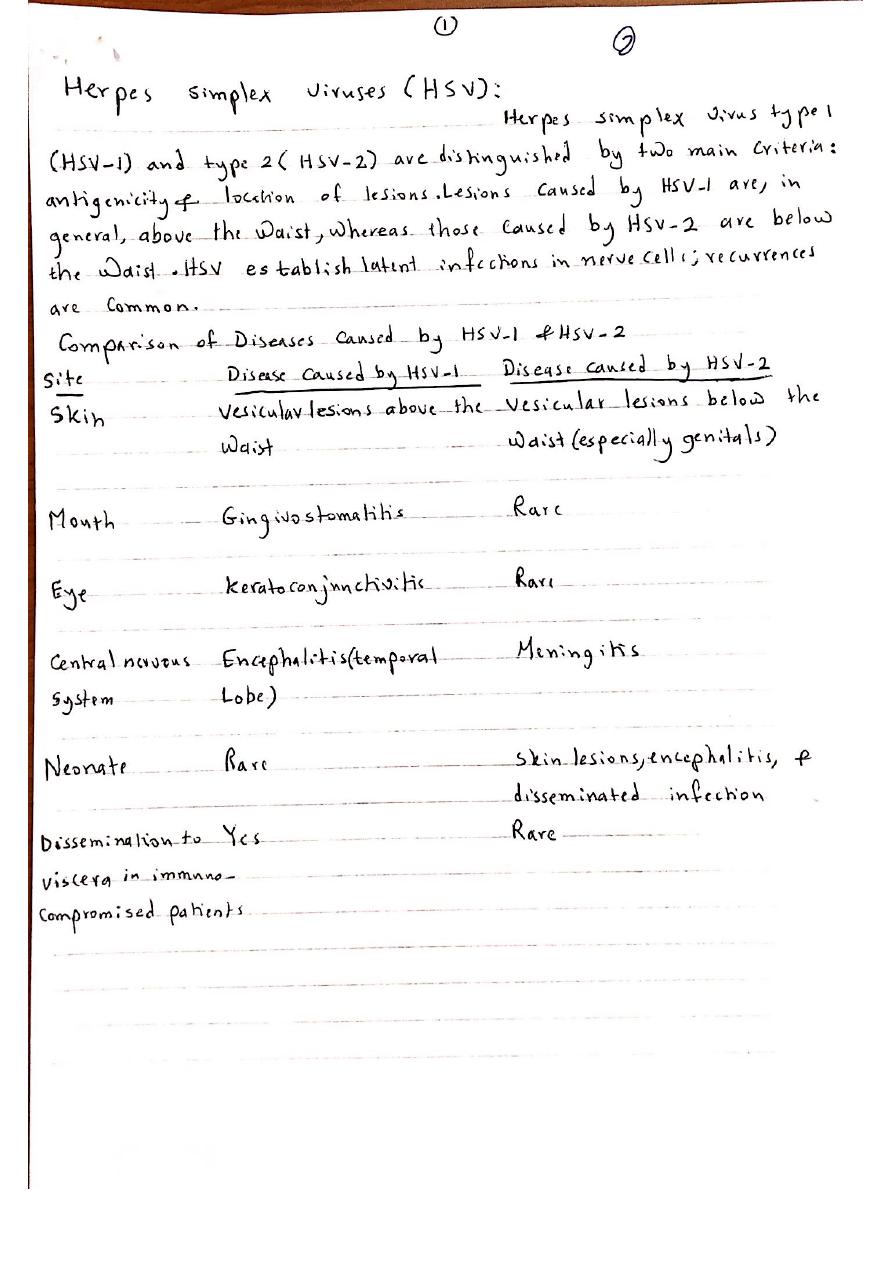 ①
②
Herpes simplex viruses (HSV):
Herpes simplex virus type 1
(HSV-1) and type 2( HSV-2) are distinguished by two main criteria:
antigenicity & location of lesions. Lesions caused by HSV-1 are, in
general, above the Waist, whereas those caused by HSV-2 are below
the Waist. HSV establish latent infections in nerve cells; recurrences
are common.
Comparison of Diseases caused by HSV-1 & HSV-2
Site Disease caused by HSV-1 Disease caused by HSV-2
Skin Vesicular lesions above the Vesicular lesions below the
Waist Waist (especially genitals)
Mouth Gingivostomatitis Rare
Eye Keratoconjunctivitis Rare
Central nervous Encephalitis(temporal Meningitis
System Lobe)
Neonate Rare Skin lesions, encephalitis, &
disseminated infection
Dissemination to Yes Rare
viscera in immuno-
Compromised patients